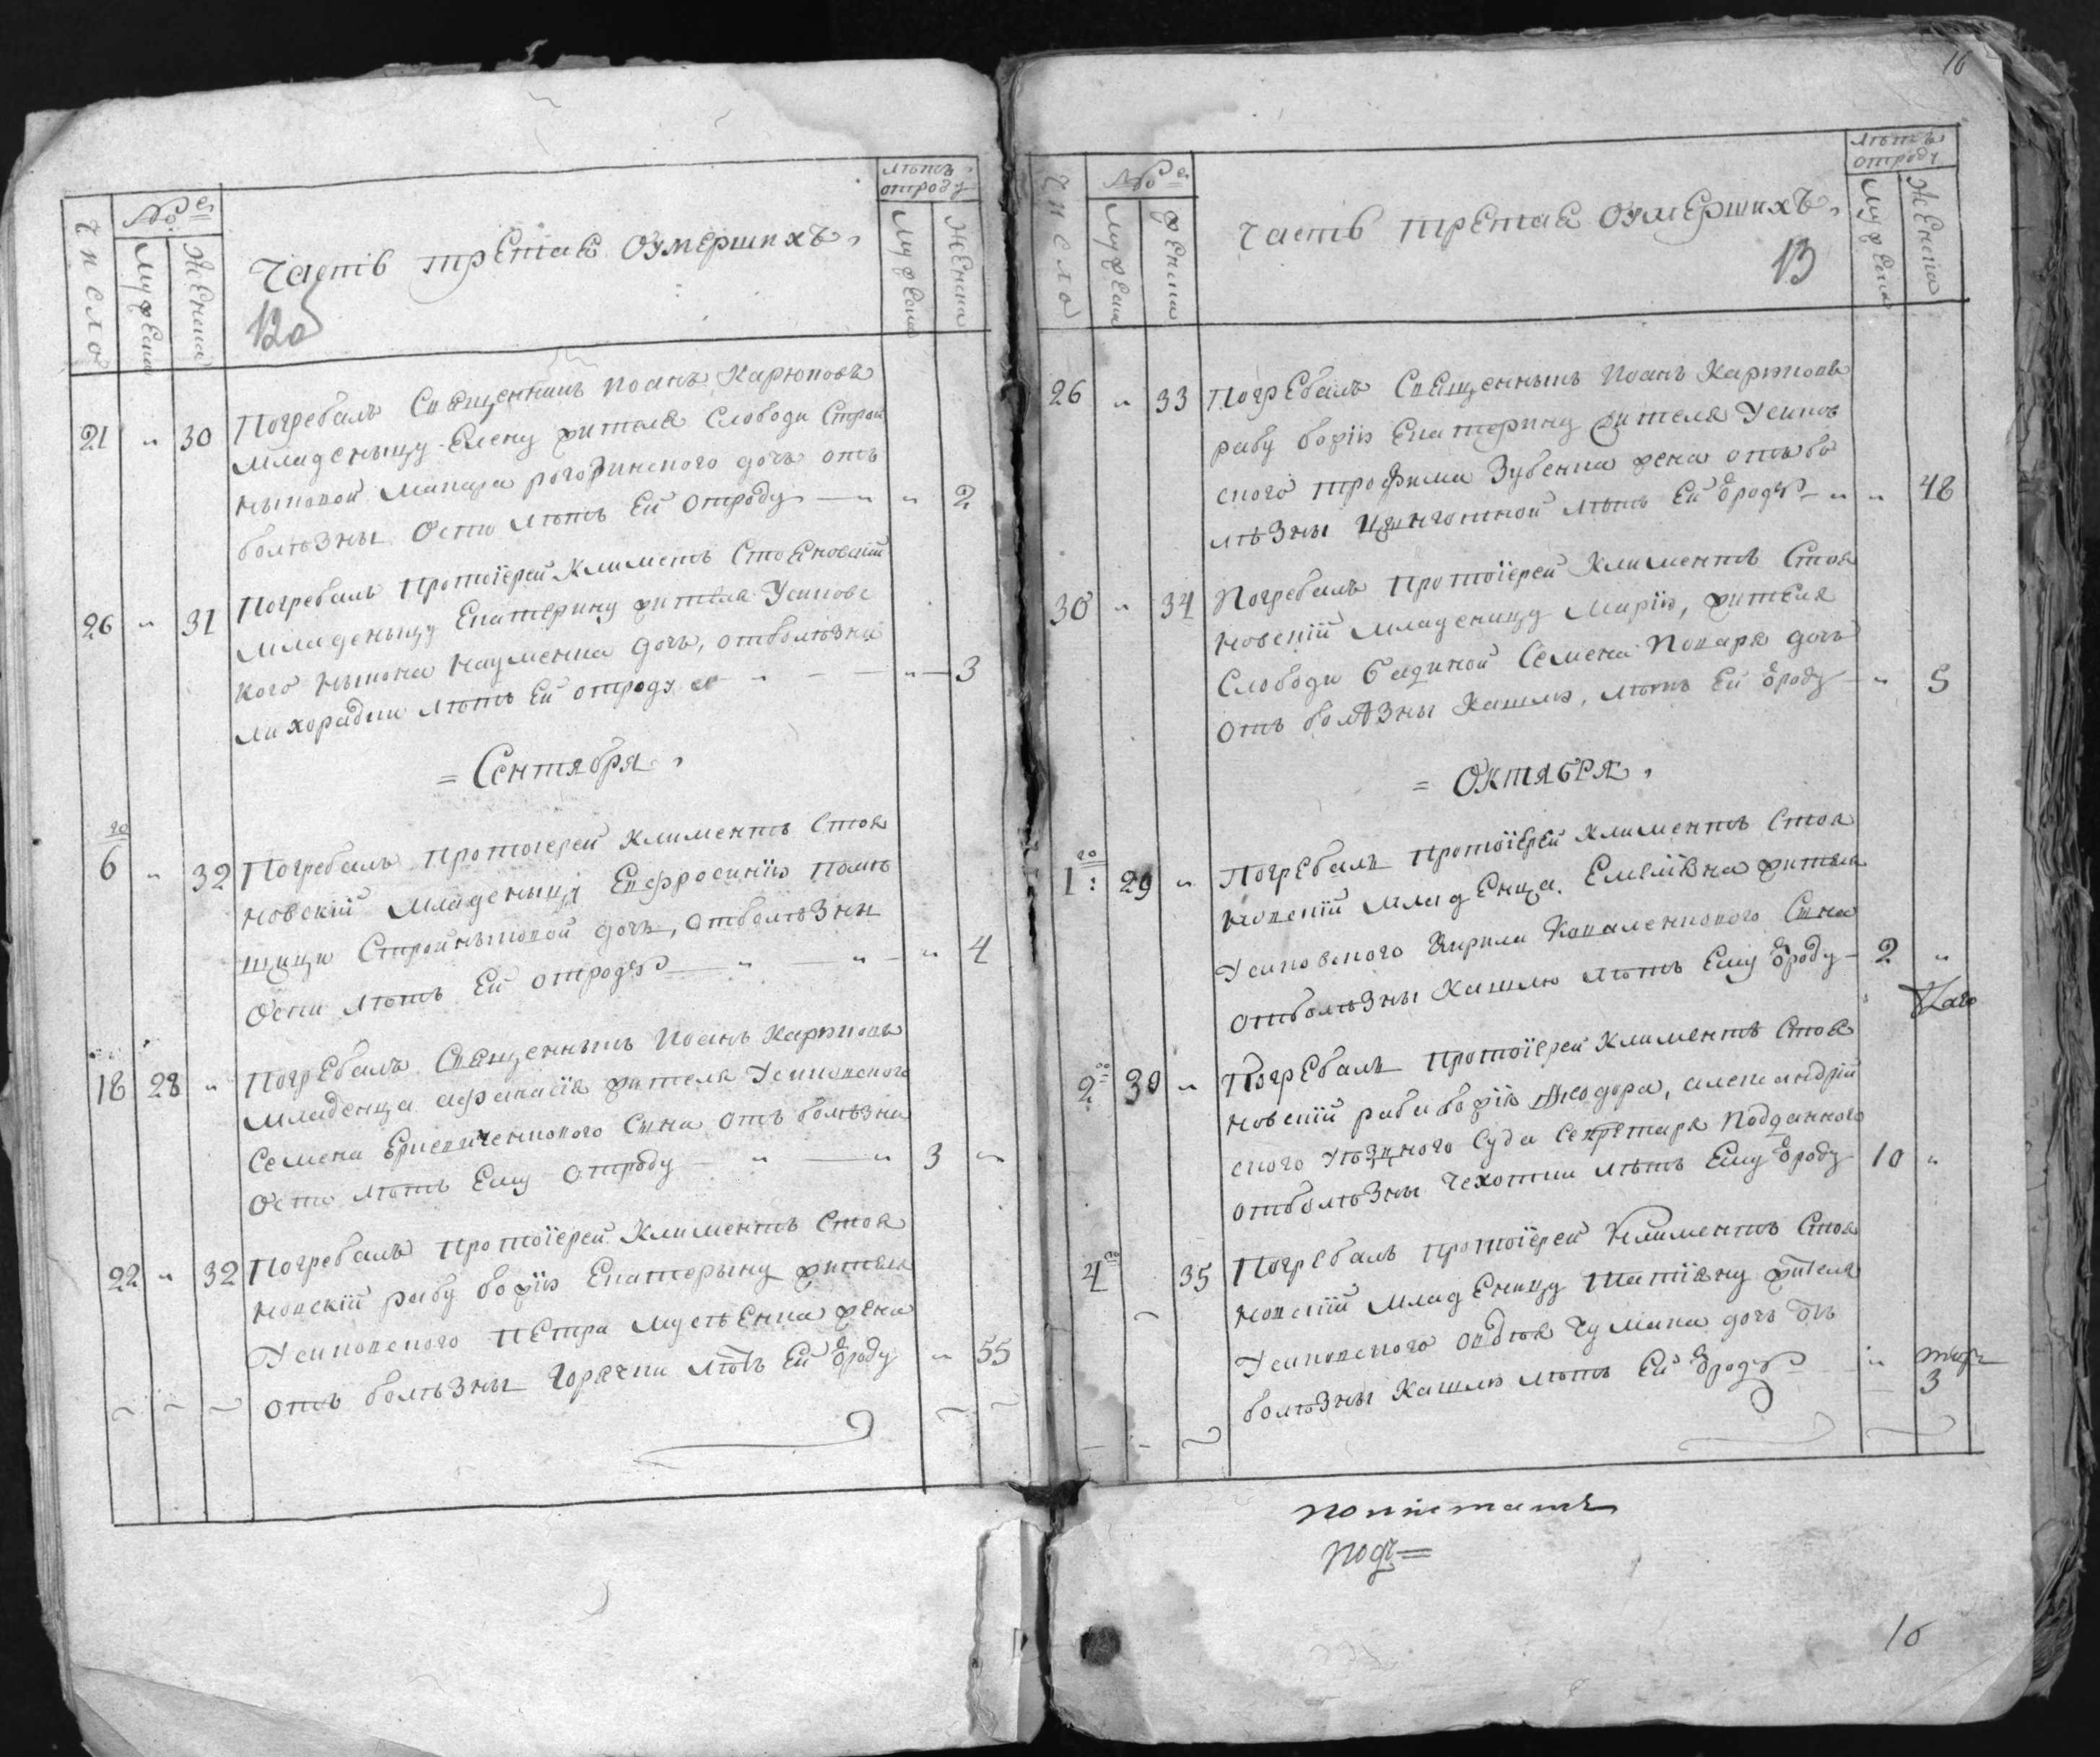 Число
№ а
мужеска
женска
Часть третая оумершихъ,
12 об
лѣтъ
отроду
мужеска
женска
21 " 30 Погребалъ Священникъ Иоанъ Карповъ
младеницу Елену жителя Слободи Строи
нытовой Макара рогозинского дочь отъ
болѣзны Оспи лѣтъ Ей отроду " " 2
26 " 31 Погребалъ Протоіерей Климентъ Стояновскій
младеницу Екатерину жителя Усиковс
кого науменка дочь, отболѣзни
лихорадки лѣтъ Ей отроду " " 3
= Сентября,
го
6 " 32 Погребалъ Протоіерей Климентъ Стоя
новскій младеницу Евфросинію помѣ
щици дочь, отболѣзны
Оспи лѣтъ Ей отроду " " " 4
18 28 " Погребалъ Священникъ Иоанъ Карповъ
младенца афанасія жителя Усиковского
Семена Сина отъ болѣзны
Оспи лѣтъ Ему отроду " " 3 "
22 " 32 Погребалъ Протоіерей Климентъ Стоя
новскій рабу божію Екатерыну жителя
Усиковского Петра жена
отъ болѣзны Горячки лѣтъ Ей ѿроду " 55
16
Число
№ а
мужеска
женска
Часть третая оумершихъ,
13
лѣтъ
отроду
мужеска
женска
26 " 33 Погребалъ Священникъ Иоанъ Карповъ
рабу божію Екатерину жителя Усиков
ского трофима Зубенка жена отъ бо
лѣзны Цинготной лѣтъ Ей ѿроду " " 48
30 " 34 Погребалъ Протоіерей Климентъ Стоя
новскій младеницу Марію, жителя
Слободи Семена Токаря дочь
Отъ болѣзны Кашлю, лѣтъ Ей ѿроду " 5
= Октября,
го
1: 29 " Погребалъ Протоіерей Климентъ Стоя
новскій младенца Емеліяна жителя
Усиковского Кирила Коваленкового Сина
отболѣзны Кашлю лѣтъ Ему ѿроду 2 "
2 30 " Погребалъ Протоіерей Климентъ Стоя
новскій раба божія Ѳеодора, александрій
ского уѣзного Суда Секретаря Подданного
отболѣзны Чехотки лѣтъ Ему ѿроду 10 "
го
4 35 Погребалъ Протоіерей Климентъ Стоя
новскій младеницу Татіяну жителя
Усиковского авдѣя Чумака дочь ѿъ
болѣзны Кашлю лѣтъ Ей ѿроду " 3
16